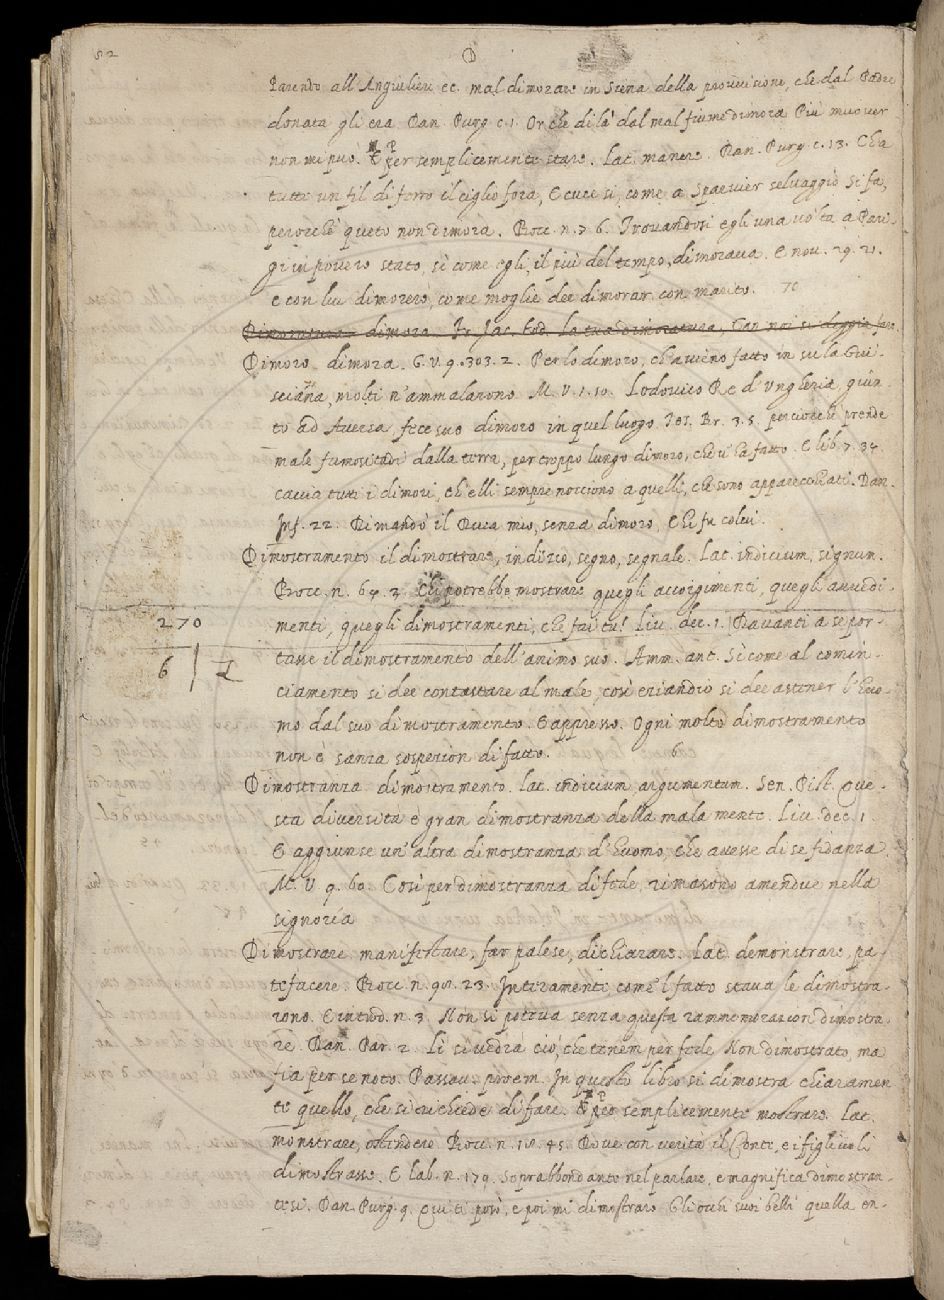 82
D
Parendo all'Angiulieri ec. mal dimorare in Siena della provvisione, che dal Padre
donata gli era. Dan. Purg. c. 1. Or che di là dal mal fiume dimora Più muover
non mi può. ¶ P per semplicemente stare. Lat. manere. Dan. Purg. c. 13. Ch'a
tutte un fil di ferro il ciglio fora, E cuce sì, come a Sparvier selvaggio Si fa,
perocchè queto non dimora. Bocc. n. 7. 6. Trovandosi egli una volta a Pari-
gi in povero stato, sì come egli, il più del tempo, dimorava. E nov. 29. 21.
e con lui dimorerò, come moglie dee dimorar con marito. 70
dimora. Fr. Jac. Tod. La tua dimoratura, Can noi si deggia fare.
Dimoro dimora. G. V. 9. 303. 2. Per lo dimoro, ch'avieno fatto in su la Gui-
sciana, molti n'ammalarono. M. V. 1. 10. Lodovico Re d'Ungheria, giun-
to ad Aversa, fece suo dimoro in quel luogo. Tes. Br. 3. 5. perciocchè prende
male fumositadi dalla terra, per troppo lungo dimoro, che v'ha fatto. E lib. 7. 34
caccia tutti i dimori, ch'elli sempre nocciono a quelli, che sono apparecchiati. Dan.
Inf. 22. Dimandò il Duca mio, senza dimoro, Chi fu colui.
Dimostramento il dimostrare, indizio, segno, segnale. Lat. indicium, signum.
Bocc. n. 64. 3. Chi potrebbe mostrare quegli accorgimenti, quegli avvedi-
270
menti, quegli dimostramenti, che fai tu! Liv. dec. 1. Davanti a se por-
6
tasse il dimostramento dell'animo suo. Amm. ant. Sì come al comin-
ciamento si dee contastare al male, così eziandio si dee astener l'Huo-
mo dal suo dimostramento. E appresso. Ogni molto dimostramento
non è sanza sospezion di fatto. 6
Dimostranza dimostramento. Lat. indicium, argumentum. Sen. Pist. Que-
sta diversità è gran dimostranza della mala mente. Liv. dec. 1.
E aggiunse un'altra dimostranza d'Huomo, che avesse di se fidanza.
M. V. 9. 60. Così per dimostranza di fede, rimasono amendue nella
signoria
Dimostrare manifestare, far palese, dichiarare. Lat. demonstrare, pa-
tefacere. Bocc. n. 98. 23. Interamente come 'l fatto stava le dimostra-
rono. E introd. n. 3. Non si poteva senza questa rammemorazion dimostra-
re. Dan. Par. 2. Lì si vedrà ciò, che tenem per fede Non dimostrato, ma
fia per se noto. Passav. proem. In questo libro si dimostra chiaramen
te quello, che si richiede di fare. ¶ P per semplicemente mostrare. Lat.
monstrare, ostendere. Bocc. n. 18. 45. Dove con verità il Conte, e i figliuoli
dimostrasse. E Lab. n. 179. Soprabbondante nel parlare, e magnifica dimostran-
tesi. Dan. Purg. 9. Qui ti posò, e poi mi dimostraro Gli occhi suoi belli quella en-